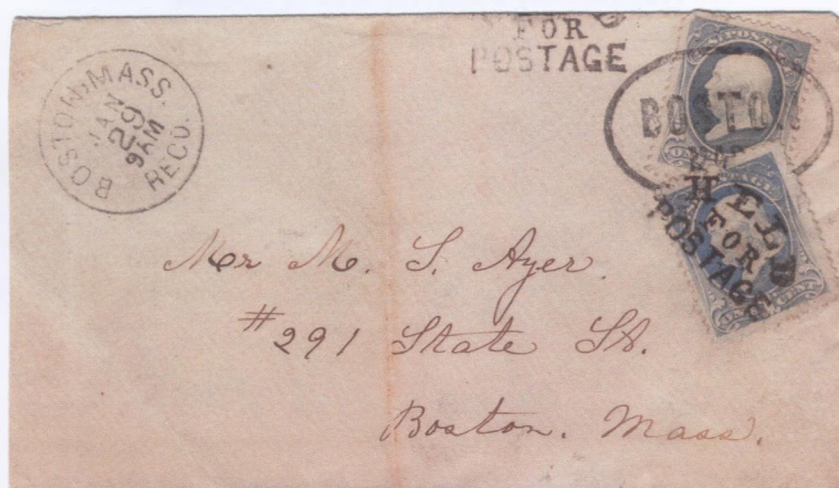 FOR
POSTAGE
BOSTON, MASS.
JAN
29
9AM
RECD.
BOSTON
HELD
FOR
POSTAGE
Mr M. S. Ayer
#291 State St.
Boston. Mass.